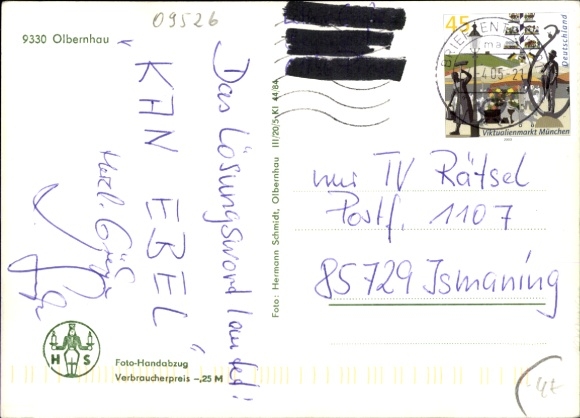 09526
9330 Olbernhau
Das Lösungswort lautet:
"KAN EBEL"
Herzl. Grüße
H S
Foto-Handabzug
Verbraucherpreis -,25 M
Foto: Hermann Schmidt, Olbernhau III/20/5 KI 44/84
45
Deutschland
Viktualienmarkt München
nur TV Rätsel
Postf. 1107
85729 Ismaning